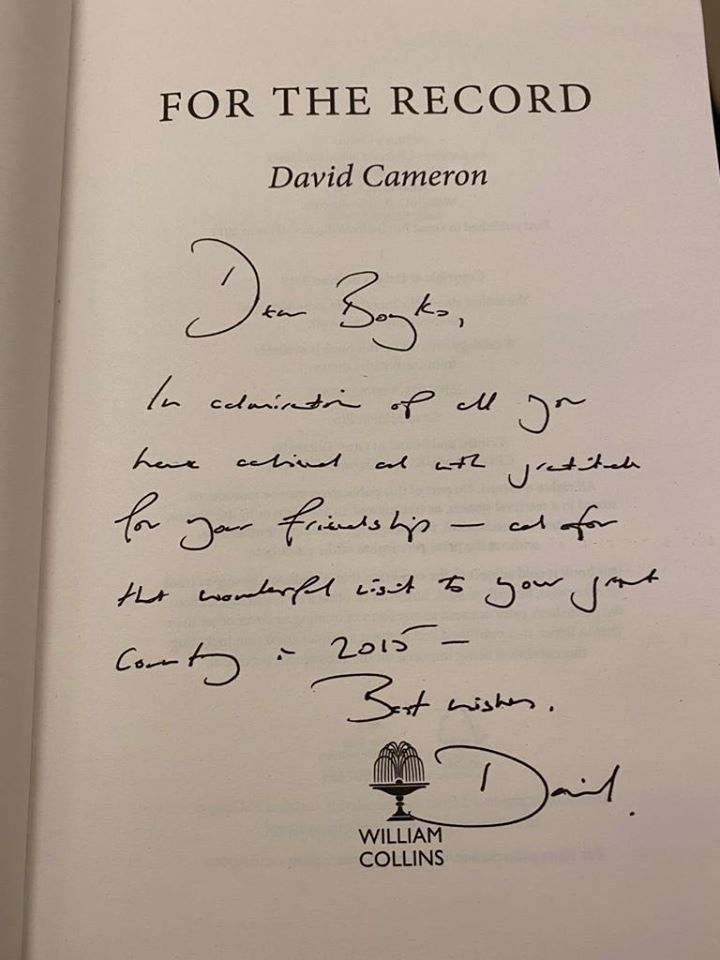 FOR THE RECORD
David Cameron
Dear Boyko,
In admiration of all you
have achieved and with gratitude
for your friendship – and for
that wonderful visit to your great
Country in 2015 –
Best wishes.
David.
WILLIAM
COLLINS